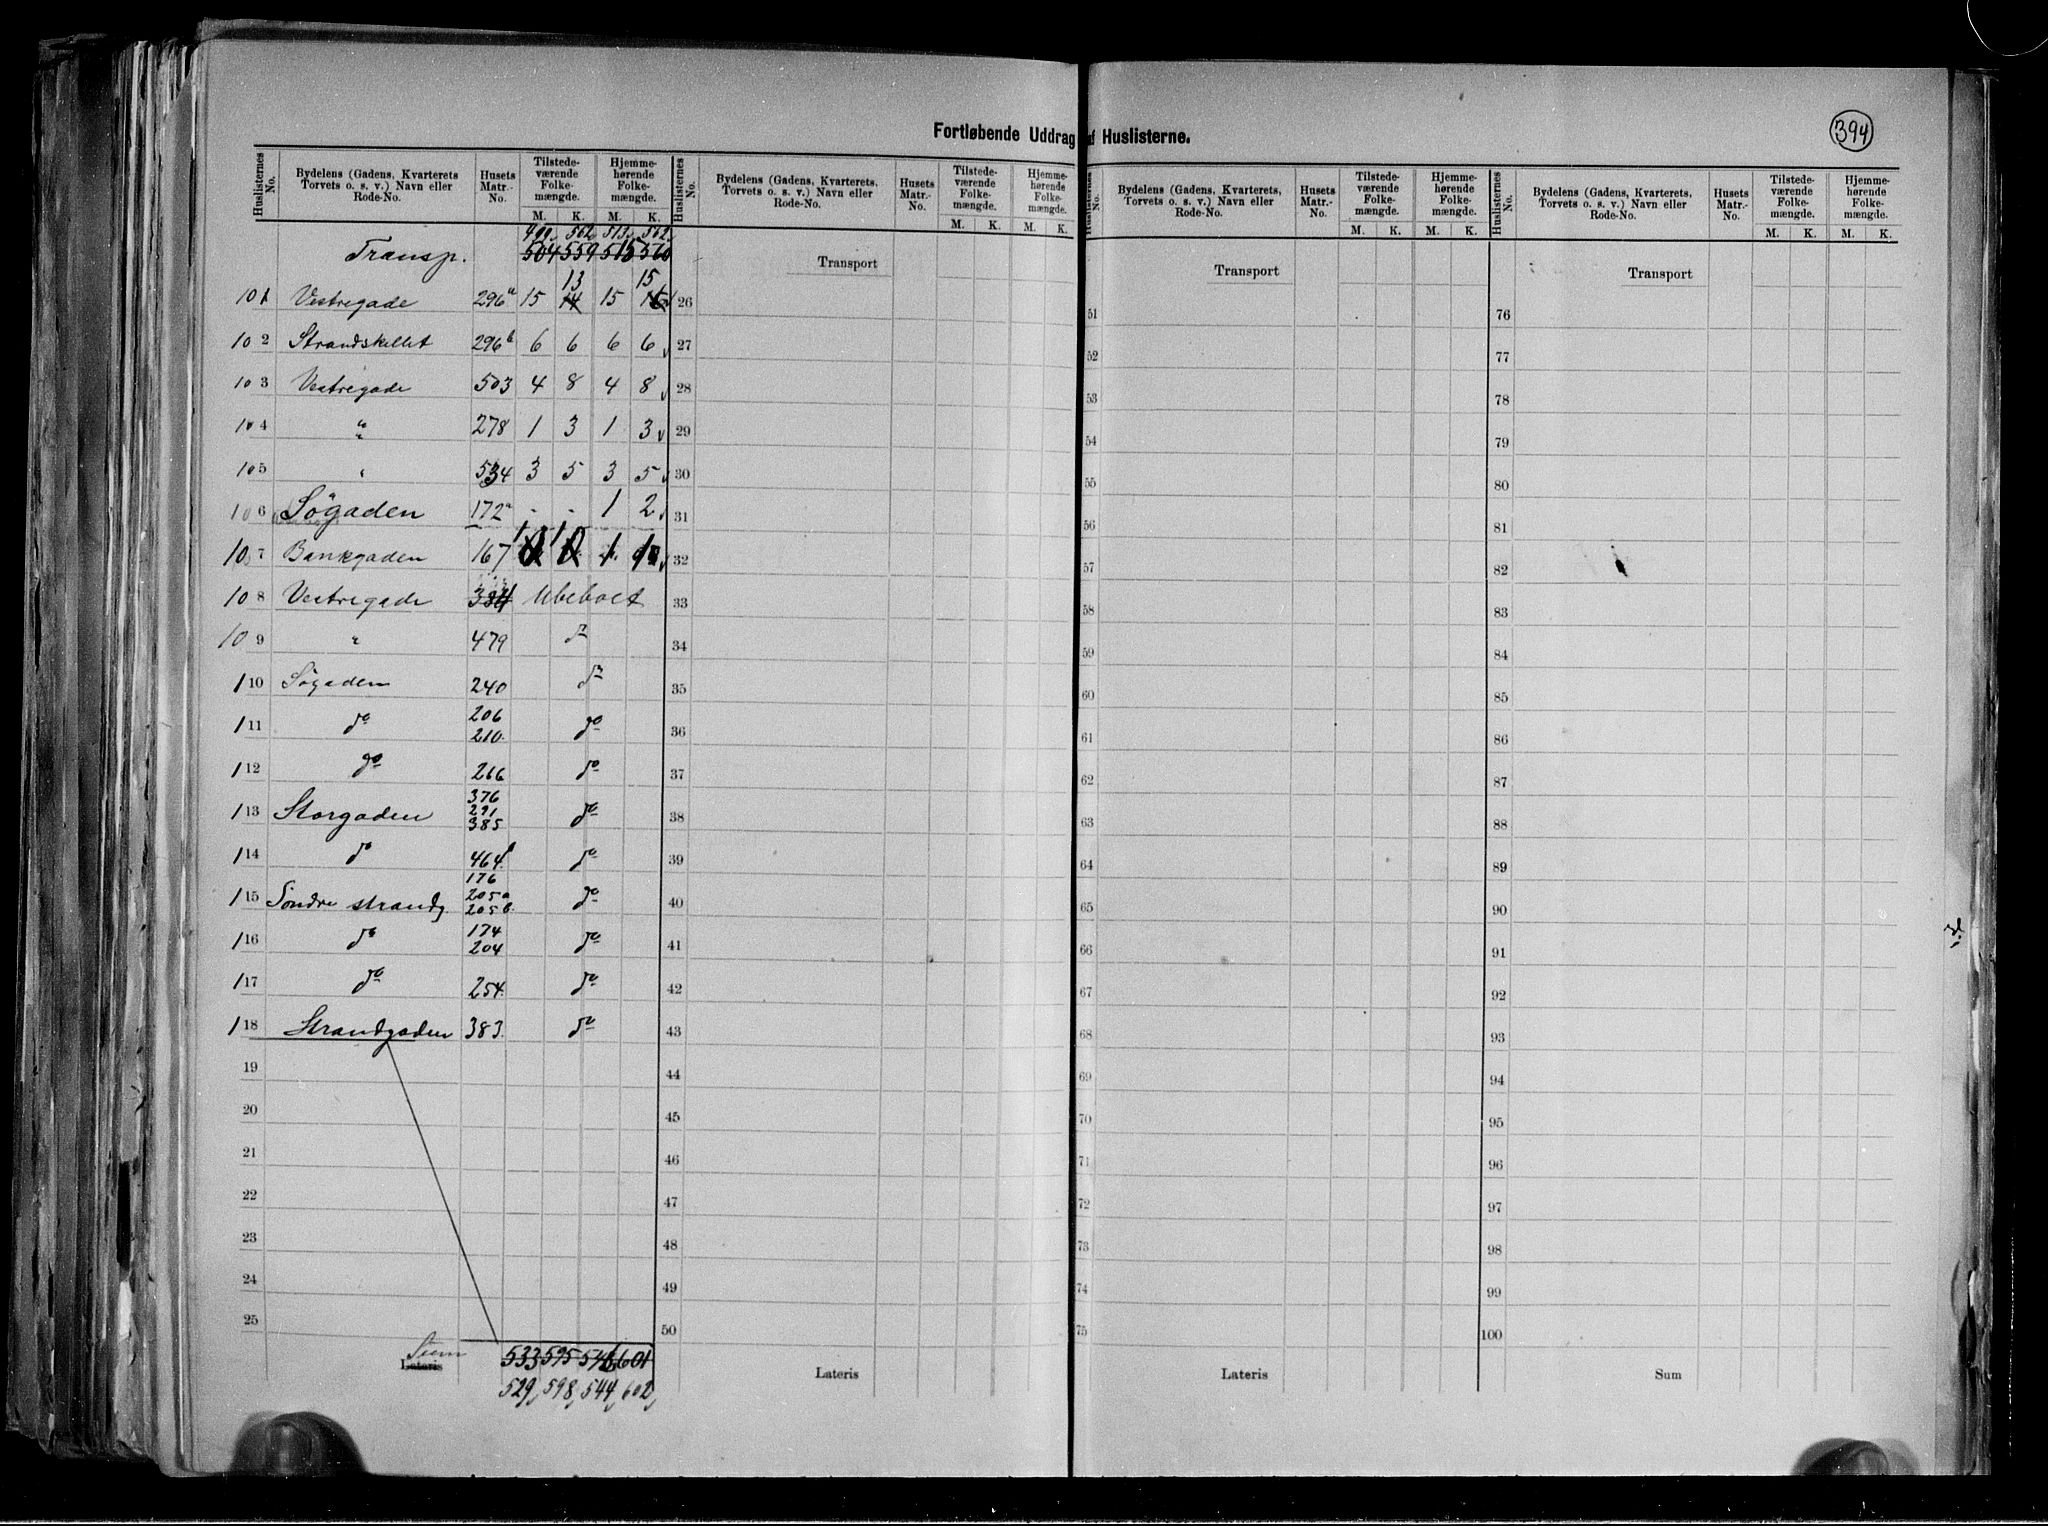 394
Fortløbende Uddrag af Huslisterne.
Huslisternes No. Bydelens (Gadens, Kvarterets Torvets o. s. v.) Navn eller Rode-No. Husets Matr.-No. Tilstedeværende Folkemængde. M. K. Hjemmehørende Folkemængde. M. K.
499 562 513 562
Transp. 504 559 515 560
13 15
101 Vestregade 296a 15 14 15 16
102 Strandskellet 296b 6 6 6 6
103 Vestregade 503 4 8 4 8
104 " 278 1 3 1 3
105 " 534 3 5 3 5
106 Søgaden 172a - - 1 2
107 Bankgaden 167 1 1 1 1
108 Vestregade 384 Ubeboet
109 " 479 do
110 Søgaden 240 do
111 do 206 210 do
112 do 266 do
113 Storgaden 376 291 385 do
114 do 464 do
115 Søndre strandg. 176 205a 205b do
116 do 174 204 do
117 do 254 do
118 Strandgaden 383 do
19
20
21
22
23
24
25
Sum
Lateris 533 595 546 601
529 598 544 602
Huslisternes No. Bydelens (Gadens, Kvarterets, Torvets o. s. v.) Navn eller Rode-No. Husets Matr.-No. Tilstedeværende Folkemængde. M. K. Hjemmehørende Folkemængde. M. K.
Transport
26
27
28
29
30
31
32
33
34
35
36
37
38
39
40
41
42
43
44
45
46
47
48
49
50
Lateris
Huslisternes No. Bydelens (Gadens, Kvarterets, Torvets o. s. v.) Navn eller Rode-No. Husets Matr.-No. Tilstedeværende Folkemængde. M. K. Hjemmehørende Folkemængde. M. K.
Transport
51
52
53
54
55
56
57
58
59
60
61
62
63
64
65
66
67
68
69
70
71
72
73
74
75
Lateris
Huslisternes No. Bydelens (Gadens, Kvarterets, Torvets o. s. v.) Navn eller Rode-No. Husets Matr.-No. Tilstedeværende Folkemængde. M. K. Hjemmehørende Folkemængde. M. K.
Transport
76
77
78
79
80
81
82
83
84
85
86
87
88
89
90
91
92
93
94
95
96
97
98
99
100
Sum